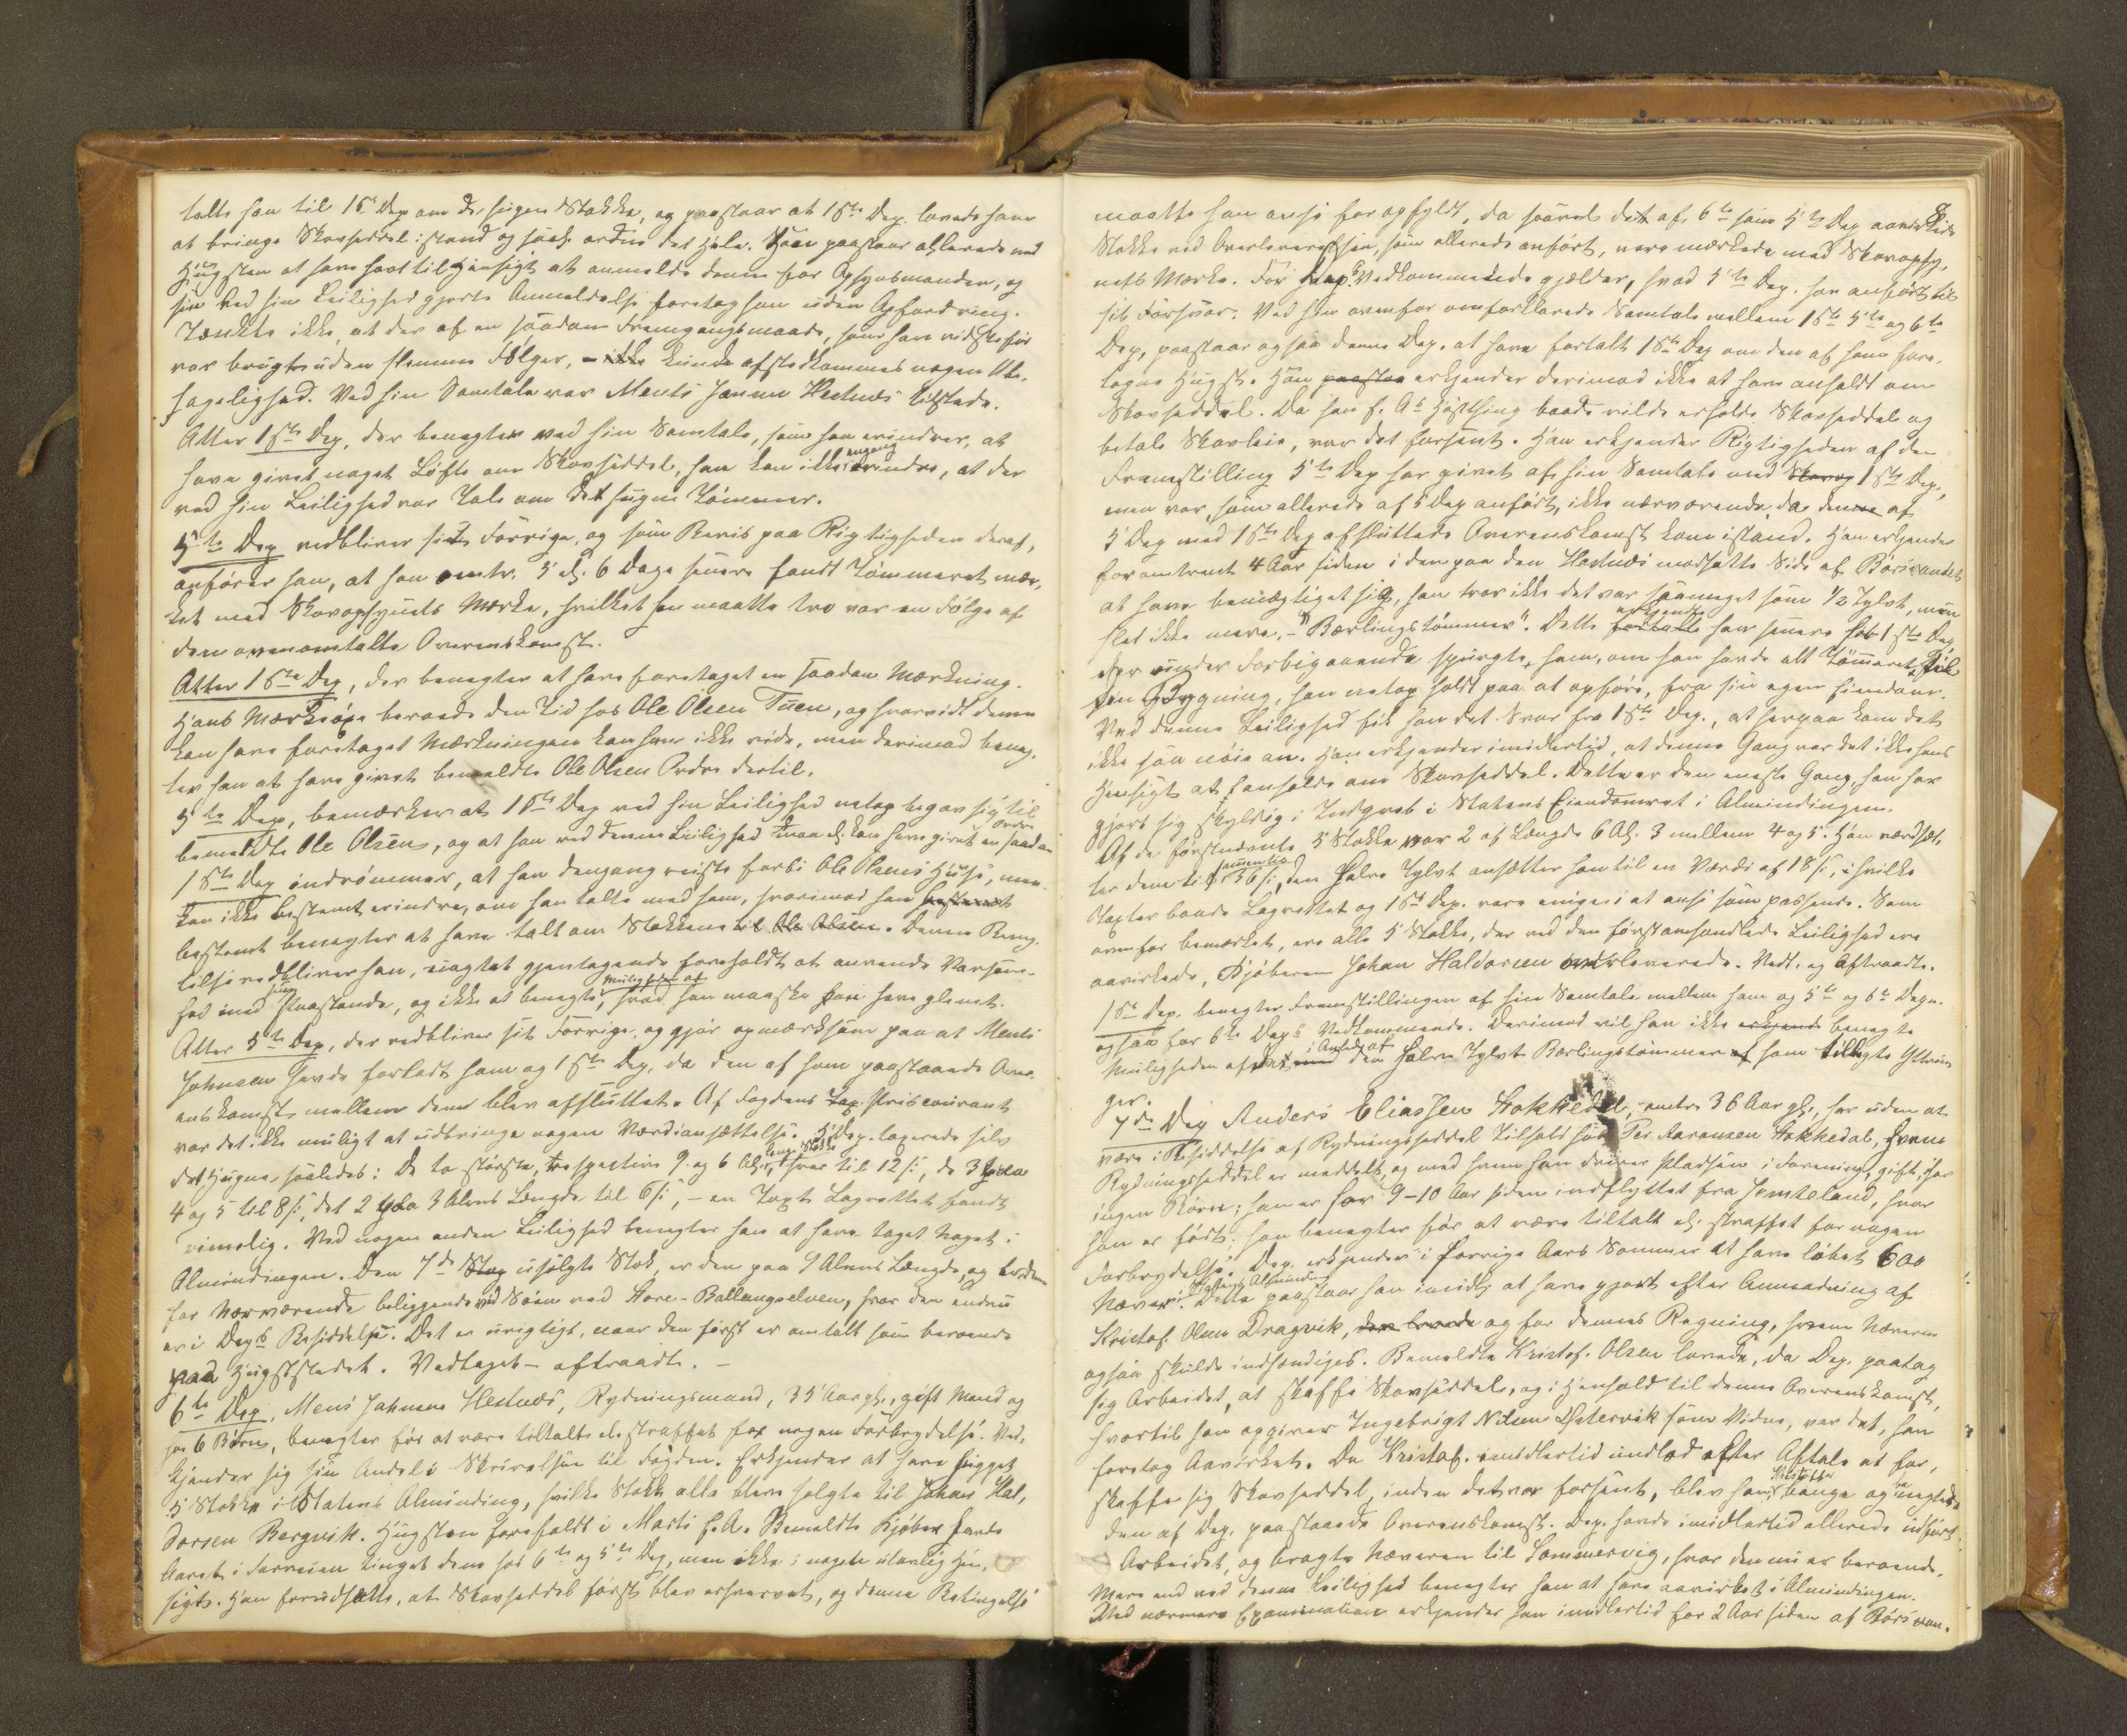 talte han til 1ste Dep om de hugne Stokke, og paastaar at 1ste Dep. lovede ham
at bringe Skovseddel istand og saa ordne det Hele. Han paastaar allerede ved
Hugsten at have havt til Hensigt at anmelde denne for Opsynsmanden, og
hin ved hin Leilighed gjorte Anmeldelse foretog han uden Opfordring.
Tænkte ikke, at der af en saadan Fremgangsmaade, som han vidste før
var brugt uden slemme Følger, – ikke kunde afstedkommes nogen Ube-
hagelighed. Ved hin Samtale var Menti Jansen Hestnes tilstede.
Atter 1ste Dep, der benegter ved hin Samtale, som han erindrer, at
have givet noget Løfte om Skovseddel, han kan ikke engang erindre, at der
ved hin Leilighed var Tale om det hugne Tømmer.
5te Dep vedbliver sit Forrige, og som Bevis paa Rigtigheden deraf,
anfører han, at han omtr. 5 el. 6 Dage senere fandt Tømmeret mær-
ket med Skovopsynets Mærke, hvilket han maatte tro var en Følge af
den ovenomtalte Overenskomst.
Atter 1ste Dep, der benegter at have foretaget en saadan Mærkning.
Hans Mærkeøxe beroede den Tid hos Ole Olsen Tuen, og hvorvidt denne
kan have foretaget Mærkningen kan han ikke vide, men derimod beneg-
ter han at have givet bemeldte Ole Olsen Ordre dertil.
5te Dep, bemærker at 1ste Dep ved hin Leilighed netop begav sig til
bemeldte Ole Olsen, og at han ved denne Leilighed maa el. kan have givet en saadan Ordre
1ste Dep indrømmer, at han dengang reiste forbi Ole Olsens Huse, men
kan ikke bestemt erindre, om han talte med ham, hvorimod han bestemt
bestemt benegter at have talt om Stokkene til Ole Olsen. Denne Beneg-
telse vedbliver han, uagtet gjentagende foreholdt at anvende Varsom-
hed med sin Paastande, og ikke at benegte Muligheden af, hvad han maaske kan have glemt.
Atter 5te Dep, der vedbliver sit Forrige, og gjør opmærksom paa at Menti
Johnsen havde forladt ham og 1ste Dep, da den af ham paastaaede Over-
enskomst mellem dem blev afsluttet. Af Fogdens Tax. Priscourant
var det ikke muligt at udbringe nogen Værdiansættelse. 5 Dep. taxerede selv
det Hugne saaledes: De to største, respective 9 og 6 Al. lange Stokke, hver til 12 ſ, de 3 paa
4 og 5 til 8 ſ, det 2 paa 3 Alens Længde til 6 ſ, – en Taxt Lagrettet fandt
rimelig. Ved nogen anden Leilighed benegter han at have taget Noget i
Almindingen. Den 7de Stog usolgte Stok, er den paa 9 Alens Længde, og er den
for Nærværende beliggende ved Søen ved Store-Ballangselven, hvor den endnu
er i Deps Besiddelse. Det er urigtigt, naar den først er omtalt som beroende
paa Hugststedet. Vedtaget – aftraadte. –
6te Dep, Mens Johnsen Hestnes, Rydningsmand, 35 Aar gl., gift Mand og
har 6 Børn, benegter før at være tiltalt el. straffet for nogen Forbrydelse. Ved-
kjender sig sin Andel i Skrivelsen til Fogden. Erkjender at have hugget
5 Stokke i Statens Alminding, hvilke Stokke alle bleve solgte til Johan Hal-
dorsen Bergvik. Hugsten foregik i Marts f. A. Bemeldte Kjøber havde
Aaret i Forveien tinget dem hos 6te og 5te Dep, men ikke i nogen ulovlig Hen-
sigt. Han forudsatte, at Skovseddel først blev erhvervet, og denne Betingelse
maatte han anse for opfyldt, da saavel det af 6te som 5te Dep aavirkede
Stokke ved Overleverelsen, som allerede anført, vare mærkede med Skovopsy-
nets Mærke. For Deps Vedkommende gjælder, hvad 5te Dep. har anført til
sit Forsvar. Ved hin ovenfor omforklarede Samtale mellem 1ste 5te og 6te
Dep, paastaar ogsaa denne Dep. at have fortalt 1ste Dep om den af ham fore-
tagne Hugst. Han paastaa erkjender derimod ikke at have anholdt om
Skovseddel. Da han f. A. Høstthing baade vilde erholde Skovseddel og
betale Skovleie, var det forsent. Han erkjender Rigtigheden af den
Fremstilling 5te Dep har givet af hin Samtale med Skovop 1ste Dep.,
men var, som allerede af 5 Dep anført, ikke nærværende, da denne af
5 Dep med 1ste Dep afsluttede Overenskomst kom istand. Han erkjender
for omtrent 4 Aar siden i den paa den Hestnes modsatte Side af Børsvandet
at have bemægtiget sig, han tror ikke det var saameget som 1/2 Tylvt, men
slet ikke mere, – "Bærlingstømmer". Dette fortalte erkjendte han senere for 1ste Dep
der under Forbigaaende spurgte ham, om han havde alt Tømmeret til
sin Bygning, han netop holdt paa at opføre, fra sin egen Eiendom.
Ved denne Leilighed fik han det Svar fra 1ste Dep., at herpaa kom det
ikke saa nøie an. Han erkjender imidlertid, at denne Gang var det ikke hans
Hensigt at anholde om Skovseddel. Dette er den eneste Gang, han har
gjort sig skyldig i Indgreb i Statens Eiendomsret i Almindingen.
Af de førstnævnte 5 Stokke var 2 af Længde 6 Al. 3 mellem 4 og 5. Han værdsæt-
ter dem til sammen 36 ſ, den halve Tylvt ansætter han til en Værdi af 18 ſ, i hvilke
Taxter baade Lagrettet og 1ste Dep. vare enige i at anse som passende. Som
ovenfor bemærket, ere alle 5 Stokke, der ved den førstomhandlede Leilighed ere
aavirkede, Kjøberen Johan Haldorsen overleverede. Vedt. og Aftraadte.
1ste Dep. benegter Fremstillingen af hin Samtale mellem ham og 5te og 6te Dep.
ogsaa for 6te Deps Vedkommende. Derimod vil han ikke erkjende benegte
Muligheden af at i Anledn. af den halve Tylvt Bærlingstømmer af ham tillagte Yttrin-
ger.
7de Dep Anders Eliassen Stokkedal, omtr. 36 Aar gl., har uden at
være i Besiddelse af Rydningsseddel Tilhold hos Per Aaronsen Stokkedal, hvem
Rydningsseddel er meddelt, og med hvem han driver Pladsen i Forening, gift, har
ingen Børn; han er for 9–10 Aar siden indflyttet fra Jemteland, hvor
han er født; han benegter før at være tiltalt el. straffet for nogen
Forbrydelse. Dep. erkjender i forrige Aars Sommer at have løbet 600
Næver i Statens Alminding. Dette paastaar han imidl. at have gjort efter Anmodning af
Kristof. Olsen Dragvik, den lovede og for dennes Regning, hvem Næveren
ogsaa skulde indhændiges. Bemeldte Kristof. Olsen lovede, da Dep. paatog
sig Arbeidet, at skaffe Skovseddel, og i Henhold til denne Overenskomst,
hvortil han opgiver Ingebrigt Nilsen Østervik som Vidne, var det, han
foretog Aavirket. Da Kristof. imidlertid undlod efter Aftale at for-
skaffe sig Skovseddel, inden det var forsent, blev han Kristoffer bange og benegtede
den af Dep. paastaaede Overenskomst. Dep. havde imidlertid allerede udført
Arbeidet, og bragte Næveren til Sommervig, hvor den nu er beroende.
Mere end ved denne Leilighed benegter han at have aavirket i Almindingen.
Ved nærmere Examination erkjender han imidlertid for 2 Aar siden af Børsvan-